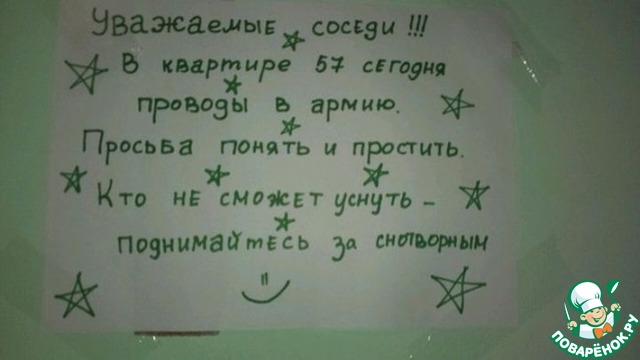 Уважаемые соседи!!!
В квартире 57 сегодня
проводы в армию.
Просьба понять и простить.
Кто не сможет уснуть –
поднимайтесь за снотворным
ПОВАРЁНОК.РУ